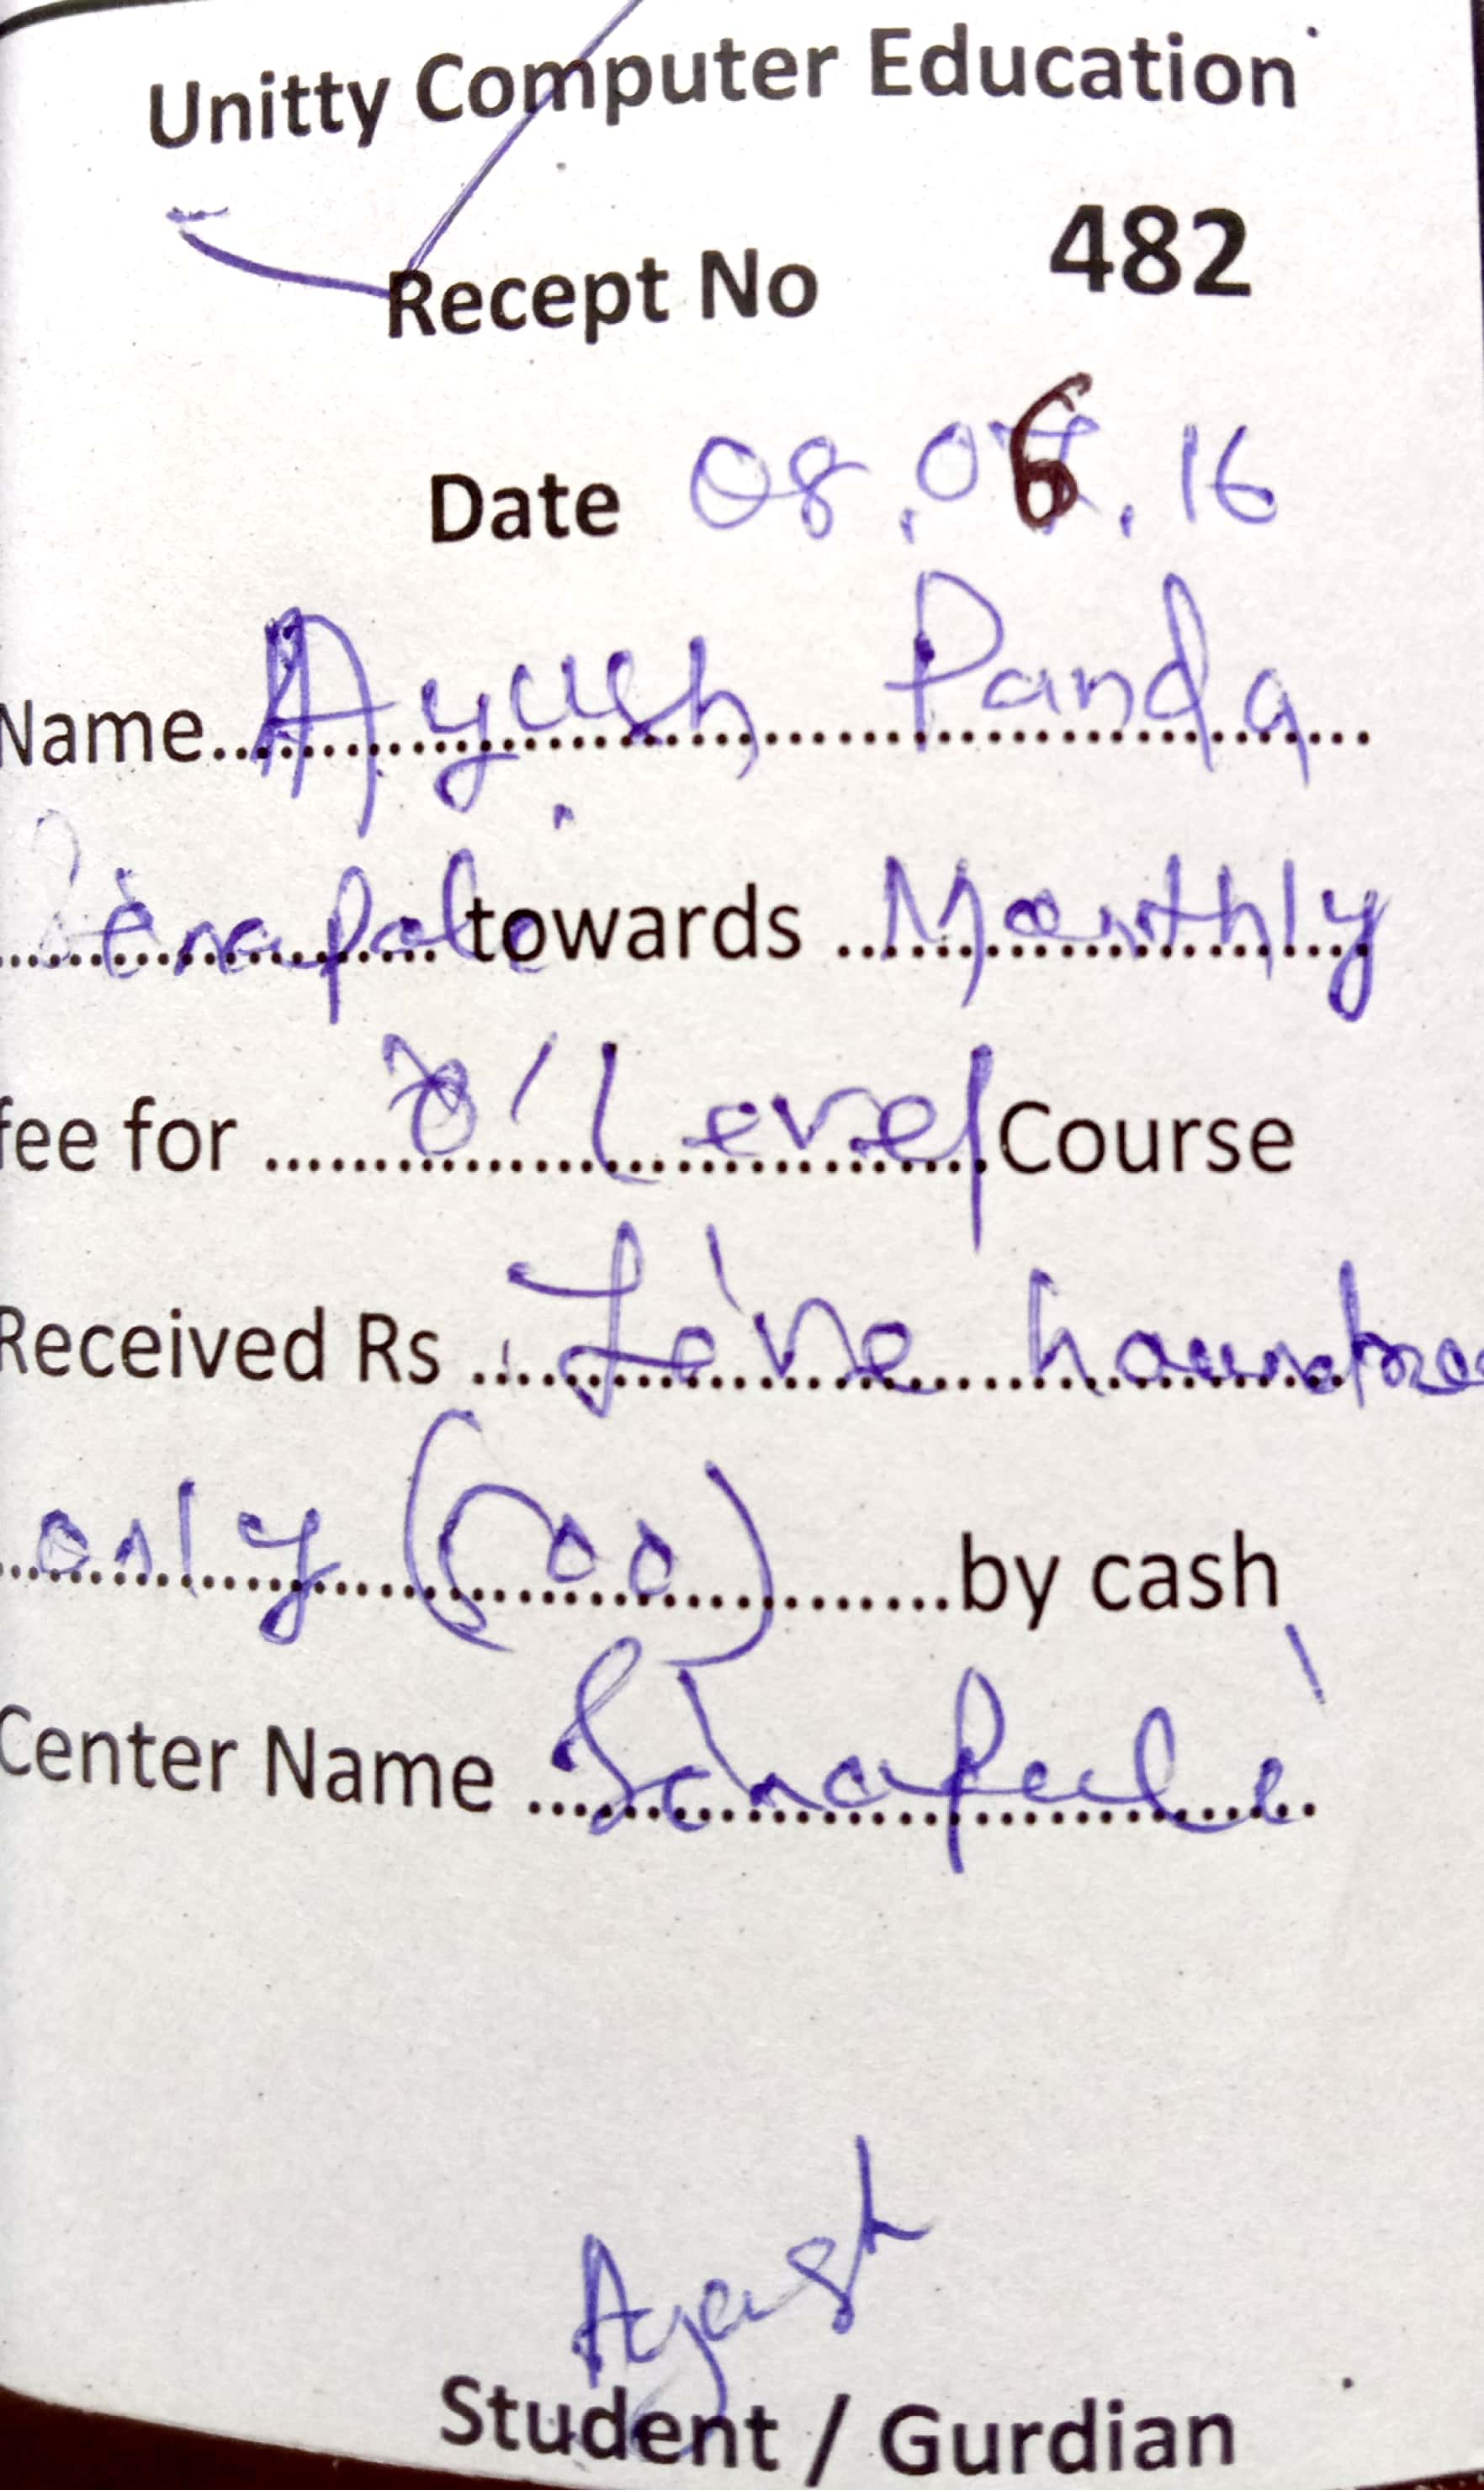 Unitty Computer Education
Recept No 482
Date 08.06.16
Name Ayush Panda
towards Monthly
fee for 'O' Level Course
Received Rs Five
only (500) by cash
Center Name Sinapali
Ayush
Student / Gurdian